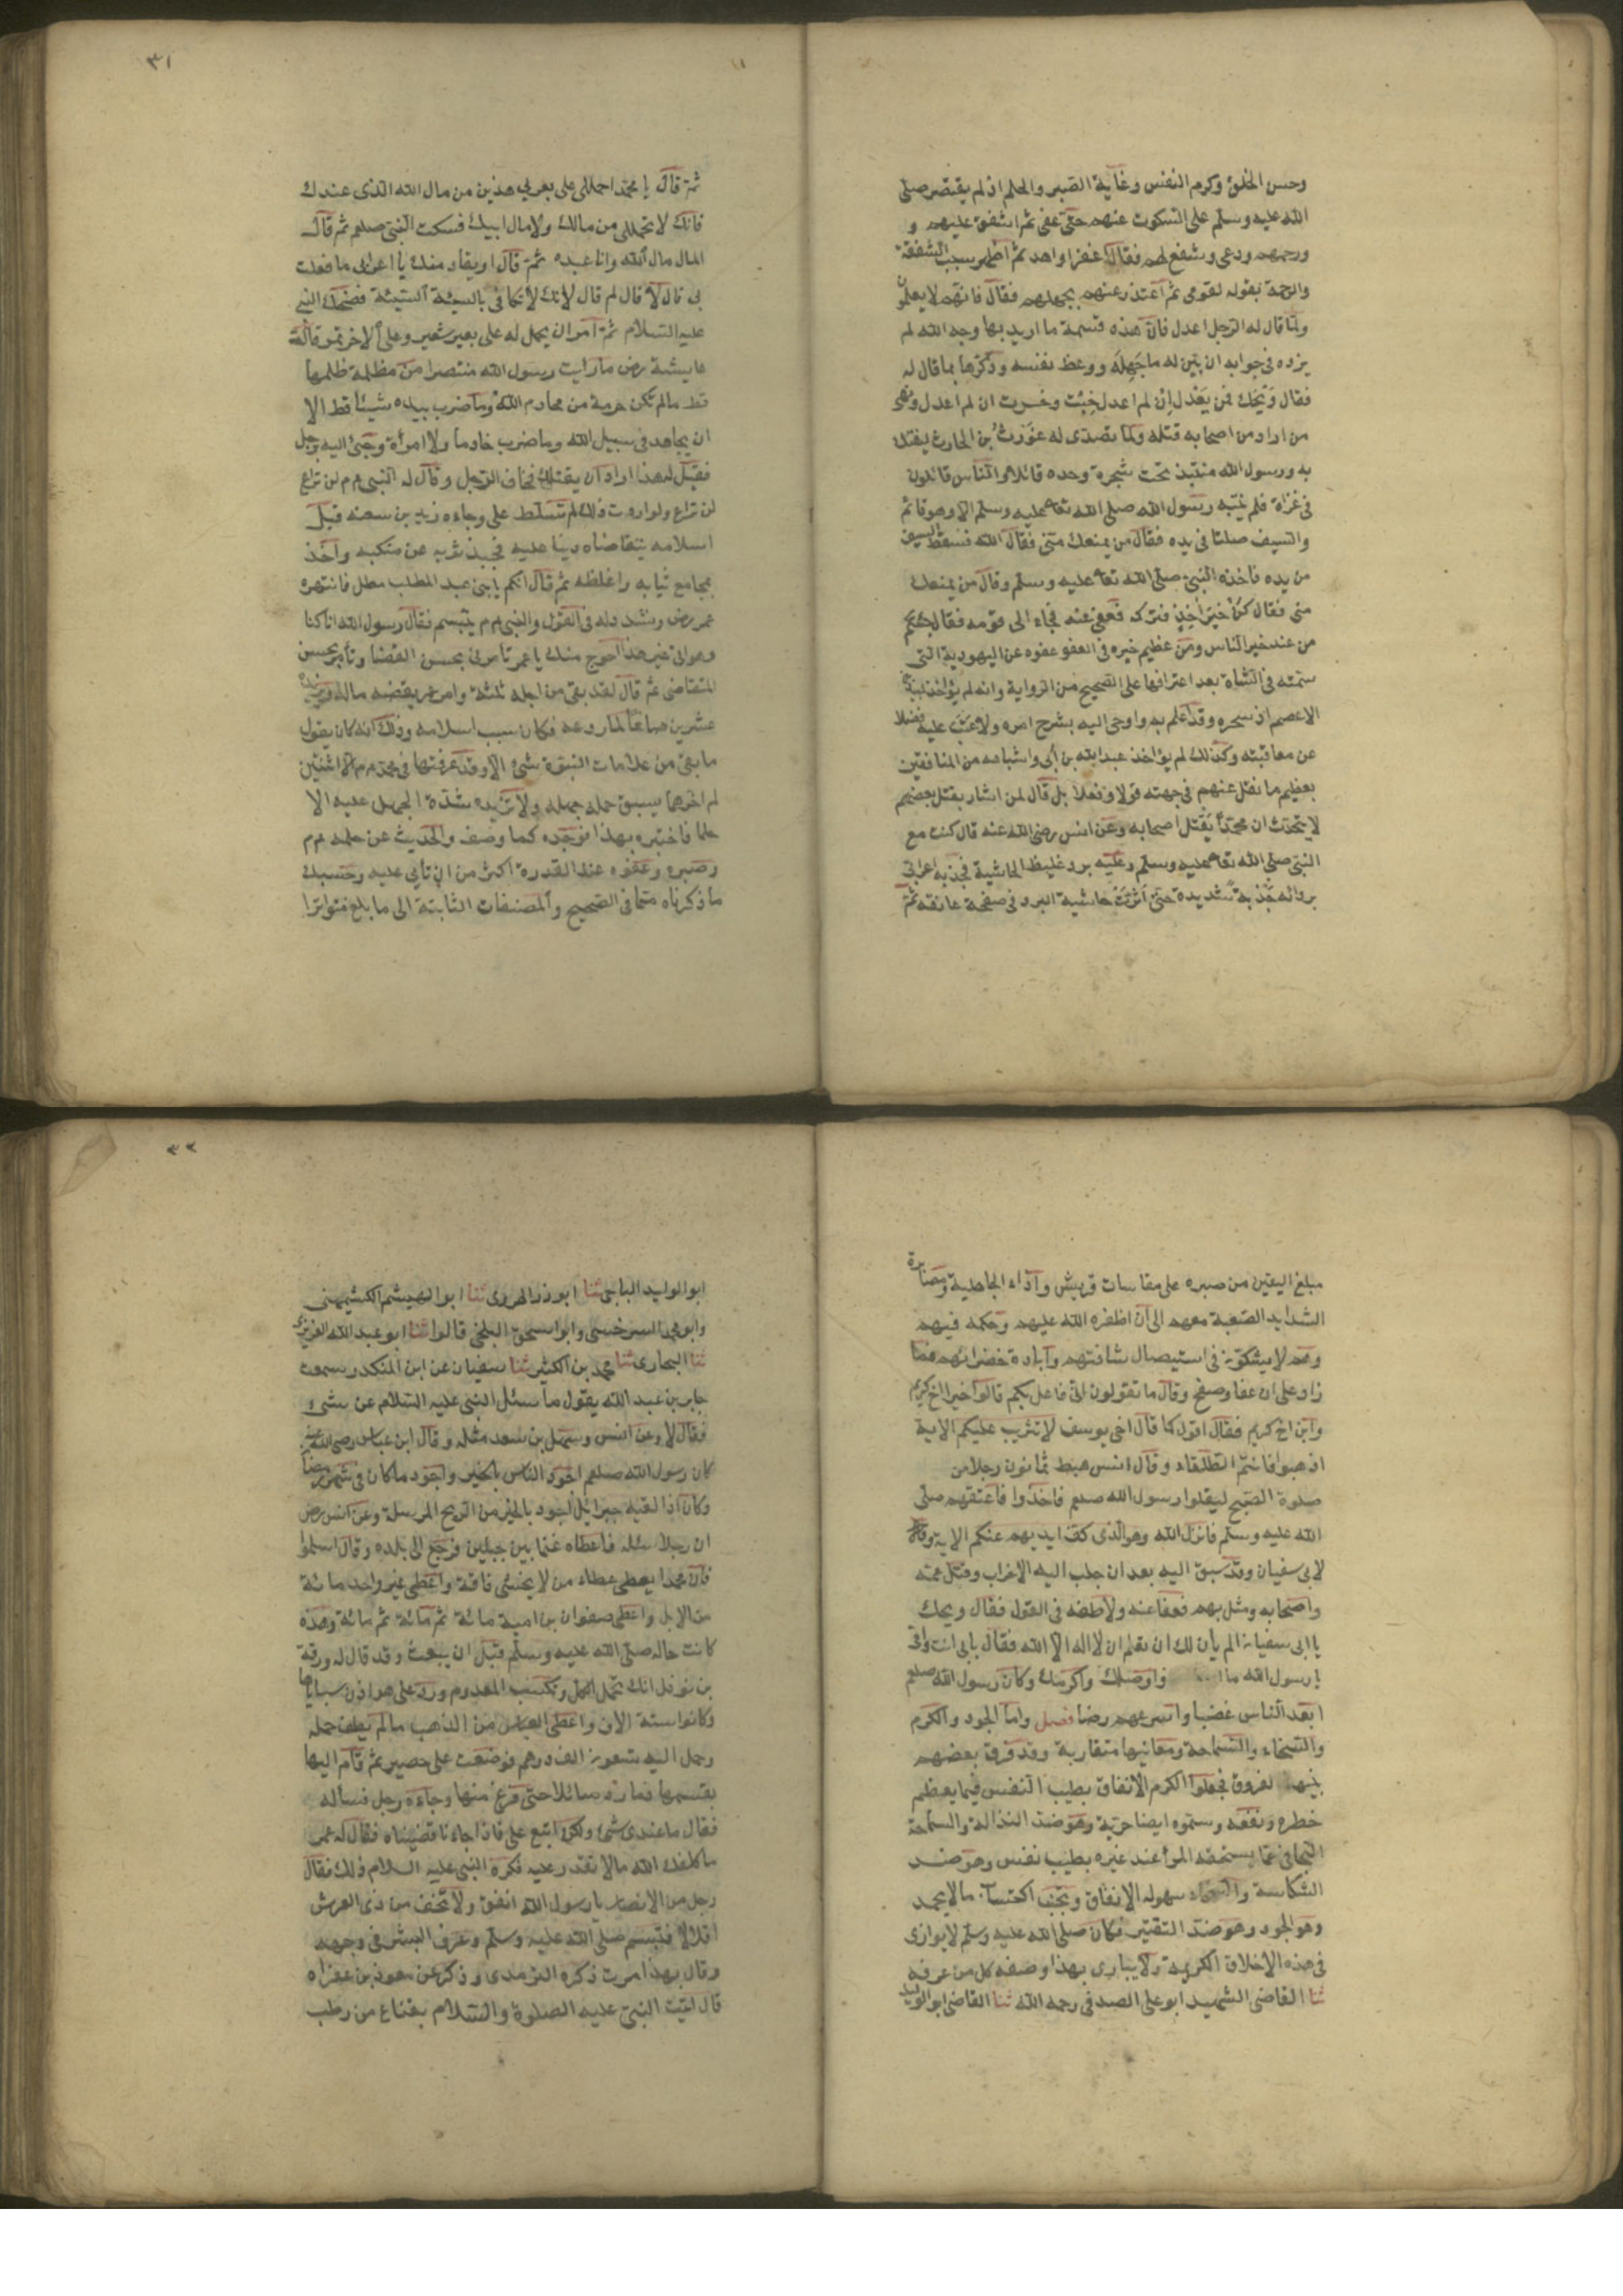 وحسن الخلق وكرم النفس وغاية الصبر والحلم اذ لم يقتصر صلى
الله عليه وسلم على السكوت عنهم حتى عفى ثم اشفق عليهم و
ورحمهم ودعى وشفع لهم فقال اغفر او اهد ثم اظهر سبب الشفقة
والرحمة بقوله لقومى ثم اعتذر عنهم بجهلهم فقال فانهم لا يعلمون
ولما قال له الرجل اعدل فان هذه قسمة ما اريد بها وجه الله لم
يزده فى جوابه ان بين له ما جهله ووعظ نفسه وذكرها بما قال له
فقال ويحك فمن يعدل ان لم اعدل خبت وخسرت ان لم اعدل ونهى
من اراد من اصحابه قتله ولما تصدى له غورث بن الحارث ليفتك
به ورسول الله منتبذ تحت شجرة وحده قائلا والناس قائلون
فى غزاة فلم ينتبه رسول الله صلى الله تعا عليه وسلم الا وهو قائم
والسيف صلتا فى يده فقال من يمنعك منى فقال الله فسقط السيف
من يده فاخذه النبى صلى الله تعا عليه وسلم وقال من يمنعك
منى فقال كن خير اخذ فتركه فعفى عنه فجاء الى قومه فقال جئتكم
من عند خير الناس ومن عظيم خبره فى العفو عفوه عن اليهودية التى
سمته فى الشاة بعد اعترافها على الصحيح من الرواية وانه لم يؤاخذ لبيد بن
الاعصم اذ سحره وقد اعلم به واوحى اليه بشرح امره ولا عتب عليه فضلا
عن معاقبته وكذلك لم يؤاخذ عبد الله بن أبى واشباهه من المنافقين
بعظيم ما نقل عنهم فى جهته قولا وفعلا بل قال لمن اشار بقتل بعضهم
لا يتحدث ان محمدا يقتل اصحابه وعن انس رضى الله عنه قال كنت مع
النبى صلى الله تعا عليه وسلم وعليه برد غليظ الحاشية فجذبه اعرابى
بردائه جذبة شديدة حتى اثرت حاشية البرد فى صفحة عاتقه ثم
٣١
ثم قال يا محمد احمللى على بعيرى هذين من مال الله الذى عندك
فانك لا تحمللى من مالك ولا مال ابيك فسكت النبى صلعم ثم قال
المال مال الله وانا عبده ثم قال او يقاد منك يا اعرابى ما فعلت
بى قال لا قال لم قال لانك لا تكافى بالسيئة السيئة فضحك النبى
عليه السلام ثم امر ان يحمل له على بعير شعير وعلى الاخر تمر قالت
عايشة رض ما رايت رسول الله منتصرا من مظلمة ظلمها
قط مالم تكن حرمة من محارم الله وما ضرب بيده شيئا قط الا
ان يجاهد فى سبيل الله وما ضرب خادما ولا امرأة وجئ اليه برجل
فقيل له هذا اراد ان يقتلك فخاف الرجل وقال له النبى عم لن تراع
لن تراع ولو اردت ذلك لم تسلط على وجاءه زيد بن سعنه قبل
اسلامه يتقاضاه دينا عليه فجبذ ثوبه عن منكبه واخذ
بمجامع ثيابه واغلظه ثم قال انكم يا بنى عبد المطلب مطل فانتهره
عمر رض وشدد له فى القول والنبى عم يتبسم فقال رسول الله انا كنا
وهو الى غير هذا احوج منك يا عمر تأمرنى بحسن القضا وتأمره بحسن
التقاضى ثم قال لقد بقى من اجله ثلثة وامر عمر يقضيه ماله ويزيده
عشرين صاعا لما روعه فكان سبب اسلامه وذلك انه كان يقول
ما بقى من علامات النبوة شئ الا وقد عرفتها فى محمد عم الا اثنتين
لم اخرهما يسبق حلمه جهله ولا تزيده شدة الجهل عليه الا
حلما فاختبره بهذا فوجده كما وصف والحديث عن حلمه عم
وصبره وعفوه عند القدرة اكثر من ان تأتى عليه وحسبك
ما ذكرناه مما فى الصحيح والمصنفات الثابتة الى ما بلغ متواترا
مبلغ اليقين من صبره على مقاسات قريش وآذاء الجاهلية ومصابرة
الشدايد الصعبة معهم الى ان اظفره الله عليهم وحكمه فيهم
وهم لا يشكون فى استيصال شافتهم وابادة خضرائهم فما
زاد على ان عفا وصفح وقال ما تقولون انى فاعل بكم قالوا خيرا اخ كريم
وابن اخ كريم فقال اقول كما قال اخى يوسف لا تثريب عليكم الاية
اذهبوا فانتم الطلقاء وقال انس هبط ثمانون رجلا من
صلوة الصبح ليقتلوا رسول الله صلعم فاخذوا فاعتقهم صلى
الله عليه وسلم فانزل الله وهو الذى كف ايديهم عنكم الاية وقال
لابى سفيان وقد سبق اليه بعد ان جلب اليه الاحزاب وقتل عمه
واصحابه ومثل بهم فعفا عنه ولاطفه فى القول فقال ويحك
يا ابى سفيان الم يأن لك ان تعلم ان لا اله الا الله فقال بابى انت وامى
يا رسول الله ما واوصلك واكرمك وكان رسول الله صلعم
ابعد الناس غضبا واسرعهم رضا فصل واما الجود والكرم
والسخاء والسماحة ومعانيها متقاربة وقد فرق بعضهم
بينهم بفروق فجعلوا الكرم الانفاق بطيب النفس فيما يعظم
خطره ونفعه وسموه ايضا حرية وهو ضد النذالة والسماحة
التجافى عما يستحقه المرأ عند غيره بطيب نفس وهو ضد
الشكاسة والسخاء سهوله الانفاق وتجنب اكتساب مالا يحمد
وهو الجود وهو ضد التقتير فكان صلى الله عليه وسلم لا يوازى
فى هذه الاخلاق الكريمة ولا يبارى بهذا وصفه كل من عرفه
ثنا القاضى الشهيد ابو على الصدفى رحمه الله ثنا القاضى ابو الوليد
٣٢
ابو الوليد الباجى ثنا ابو ذر الهروى ثنا ابو الهيشم الكشميهنى
وابو محمد السرخسى وابو اسحق البلخى قالوا ثنا ابو عبد الله الفربرى
ثنا البخارى ثنا محمد بن الكثير ثنا سفيان عن ابن المنكدر سمعت
جابر بن عبد الله يقول ما سئل النبى عليه السلام عن شئ
فقال لا وعن انس وسهل بن سعد مثله وقال ابن عباس رضى الله عنه
كان رسول الله صلعم اجود الناس بالخير واجود ما كان فى شهر رمضان
وكان اذا لقيه جبرائيل اجود بالخير من الريح المرسلة وعن انس رض
ان رجلا سئله فاعطاه غنما بين جبلين فرجع الى بلده وقال اسلموا
فان محمدا يعطى عطاء من لا يخشى فاقة واعطى غير واحد مائة
من الابل واعطى صفوان بن امية مائة ثم مائة ثم مائة وهذه
كانت حاله صلى الله عليه وسلم قبل ان يبعث وقد قال له ورقة
بن نوفل انك تحمل الكل وتكسب المعدوم ورد على هوازن سباياها
وكانوا ستة الاف واعطى العباس من الذهب مالم يطق حمله
وحمل اليه تسعون الف درهم فوضعت على حصير ثم قام اليها
يقسمها فما رد سائلا حتى فرغ منها وجاءه رجل فسأله
فقال ما عندى شئ ولكن ابتع على فاذا جاءنا قضيناه فقال له عمر
ما كلفك الله مالا تقدر عليه فكره النبى عليه السلام ذلك فقال
رجل من الانصار يا رسول الله انفق ولا تخف من ذى العرش
اقلالا فتبسم صلى الله عليه وسلم وعرف البشر فى وجهه
وقال بهذا امرت ذكره الترمذى وذكر عن معوذ بن عفراء
قال اتيت النبى عليه الصلوة والسلام بقناع من رطب